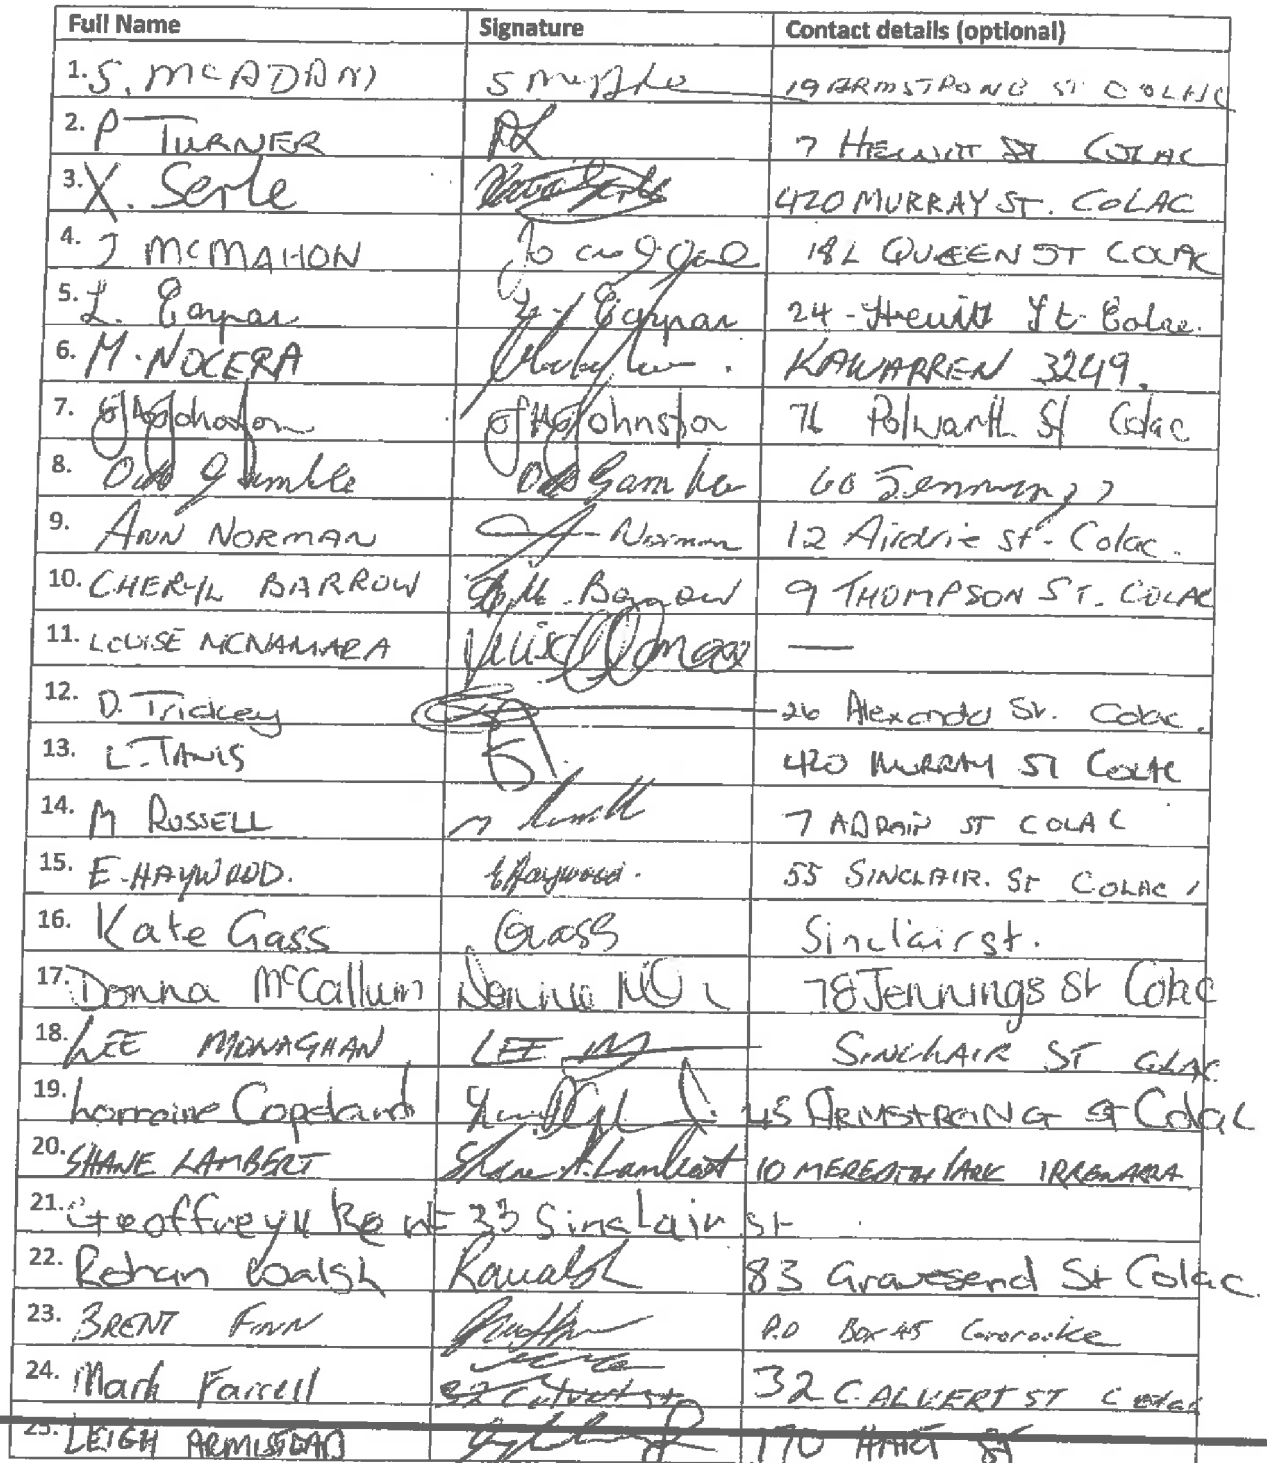 Full Name Signature Contact details (optional)
1. S. McADAM 19 ARMSTRONG ST COLAC
2. P TURNER 7 HEWITT ST COLAC
3. X. Serle 420 MURRAY ST. COLAC
4. J McMAHON QUEEN ST COLAC
5. L. 24 - Hewitt St Colac.
6. M. NOCERA KAWARREN 3249.
7. Johnston Johnston 76 Polwarth St Colac
8. Gamble Gamble 60 Jennings
9. ANN NORMAN Norman 12 Airdrie st. Colac.
10. CHERYL BARROW Barrow 9 THOMPSON ST. COLAC
11. LOUISE MCNAMARA —
12. D. Trickey 26 Alexander St. Colac.
13. L. TANIS 420 MURRAY ST COLAC
14. M RUSSELL M 7 ADRAIN ST COLAC
15. E. HAYWOOD. EHaywood. 55 SINCLAIR. ST COLAC
16. Kate Gass Gass Sinclair st.
17. Donna McCallum 78 Jennings St Colac
18. LEE MONAGHAN LEE M SINCLAIR ST COLAC
19. Lorraine Copeland 45 ARMSTRONG St Colac
20. SHANE LAMBERT Shane A. Lambert 10 MEREDITH PARK
21. Geoffrey 33 Sinclair st
22. Rohan Walsh Rawalsh 83 Gravesend St Colac.
23. BRENT FINN P.O Box 45
24. Mark Farrell 32 CALVERT ST Colac
25. LEIGH ARMISTEAD 170 HART ST